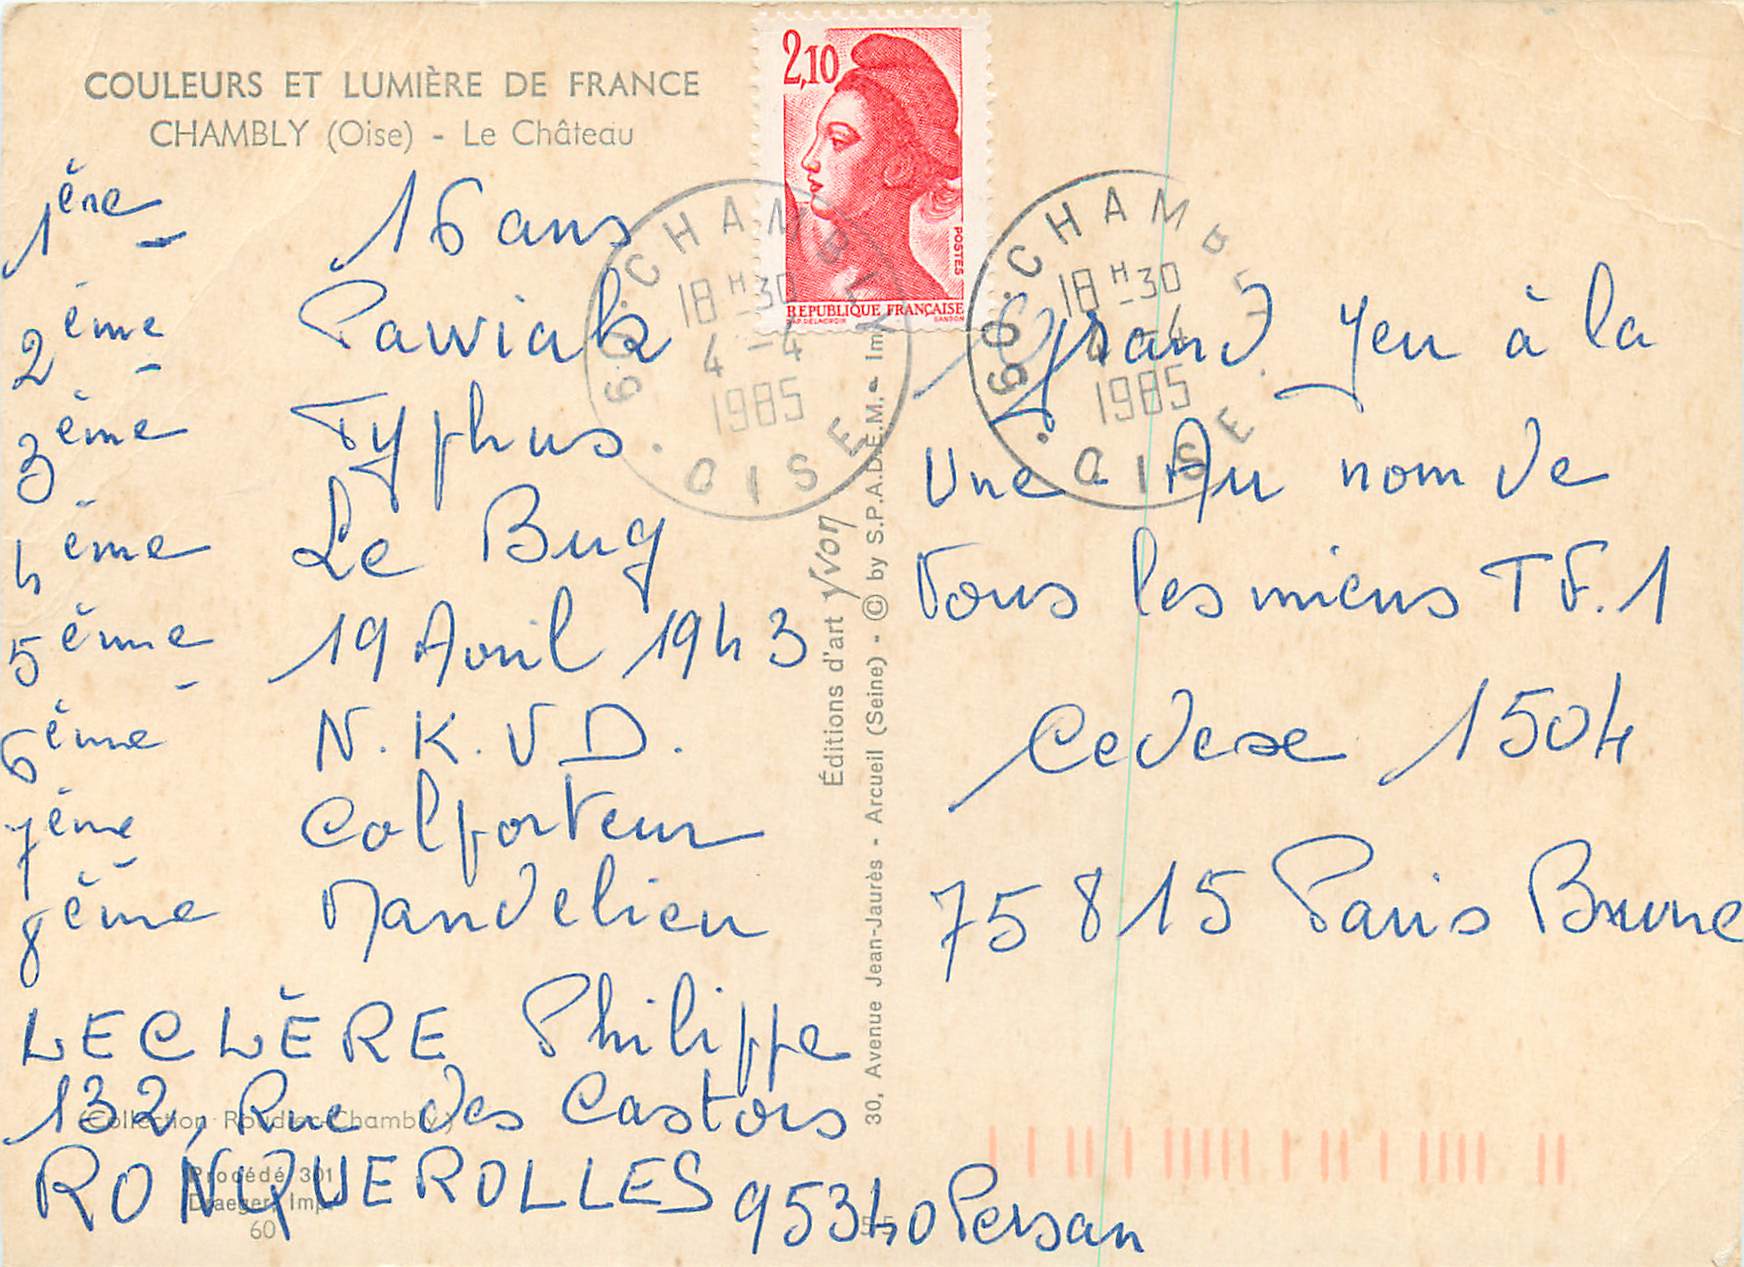 COULEURS ET LUMIÈRE DE FRANCE
CHAMBLY (Oise) - Le Château
1ère 16 ans
2ème Pawiak
3ème Typhus
4ème Le Bug
5ème 19 Avril 1943
6ème N.K.V.D.
7ème Colporteur
8ème Mandelieu
LECLÈRE Philippe
132, Rue des Castors
RONQUEROLLES 95340 Persan
(Collection Roudier-Chambly)
Procédé 301
Draeger Imp.
60
Éditions d'art yvon
30, Avenue Jean-Jaurès - Arcueil (Seine) - © by S.P.A.D.E.M. - Im
2,10
POSTES
REPUBLIQUE FRANÇAISE
D'AP. DELACROIX GANDON
60 CHAMBLY
18 H 30
4 - 4
1985
OISE
60 CHAMBLY
18 H 30
4 - 4
1985
OISE
Grand Jeu à la
Une Au nom de
Tous les miens TF.1
Cedexe 1504
75815 Paris Brune